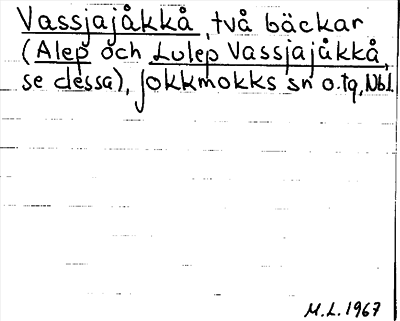 Vassjajåkkå, två bäckar
(Alep och Lulep Vassjajåkkå,
se dessa), Jokkmokks sn o. tq, Nbl.
M.L. 1967